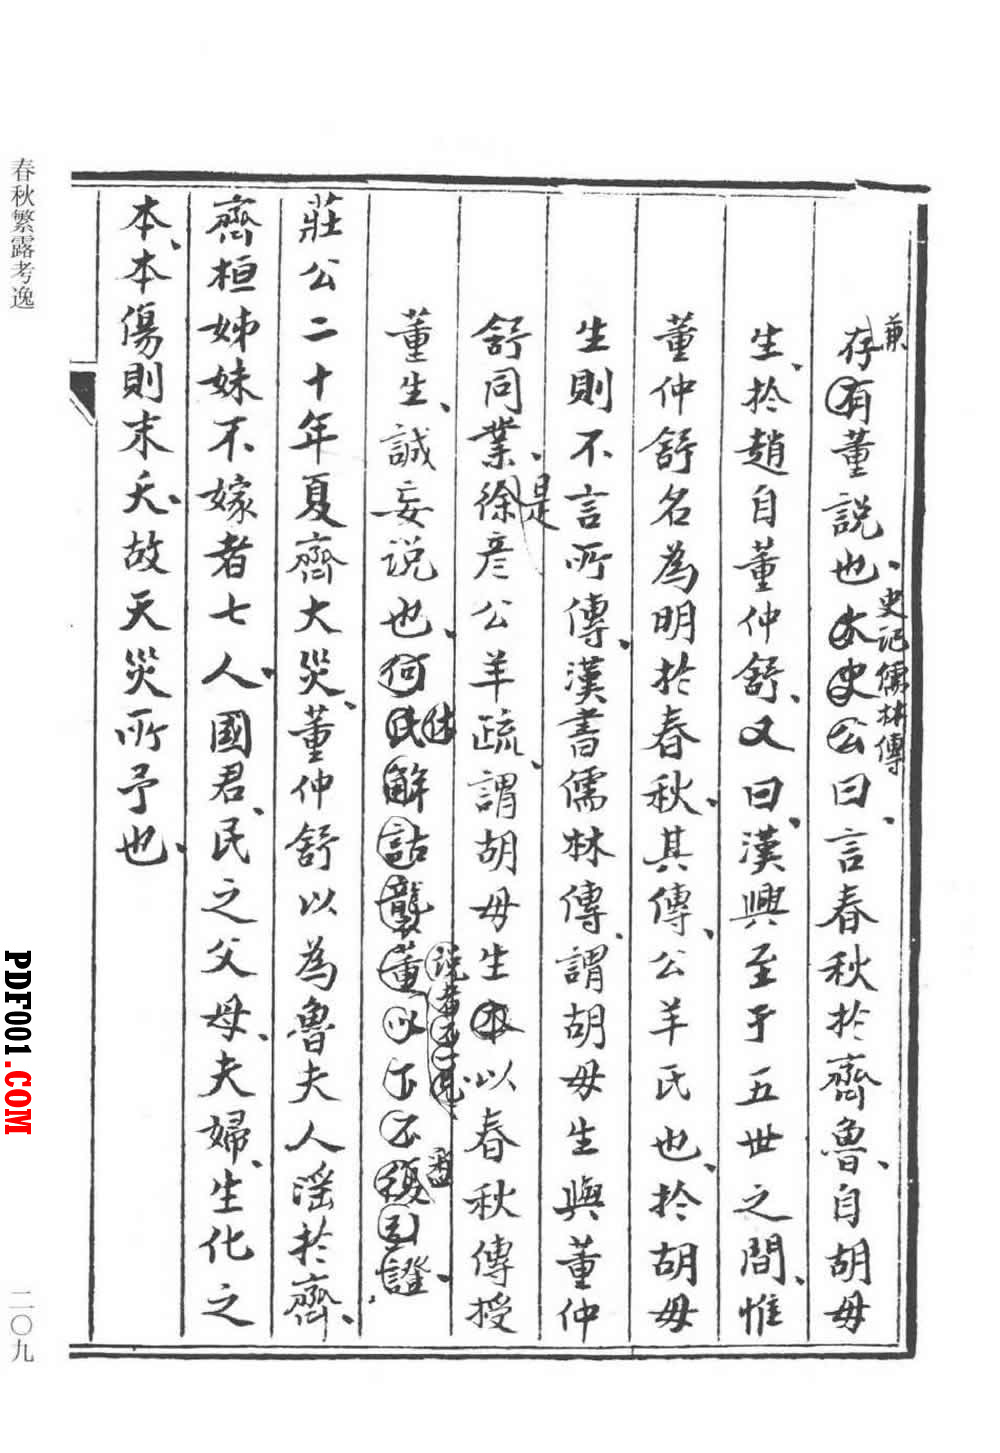 春秋繁露考逸
存有董説也太史公曰言春秋於齊魯自胡毋
兼
史記儒林傳
生於趙自董仲舒又曰漢興至于五世之間惟
董仲舒名為明於春秋其傳公羊氏也於胡毋
生則不言所傳漢書儒林傳謂胡毋生與董仲
舒同業徐彦公羊疏謂胡毋生本以春秋傳授
是
董生誠妄说也何氏解詁襲董以下不復引證
休
说者不一見
莊公二十年夏齊大災董仲舒以為魯夫人淫於齊
齊桓姊妹不嫁者七人國君民之父母夫婦生化之
本本傷則末夭故天災所予也
二〇九
PDF001.COM